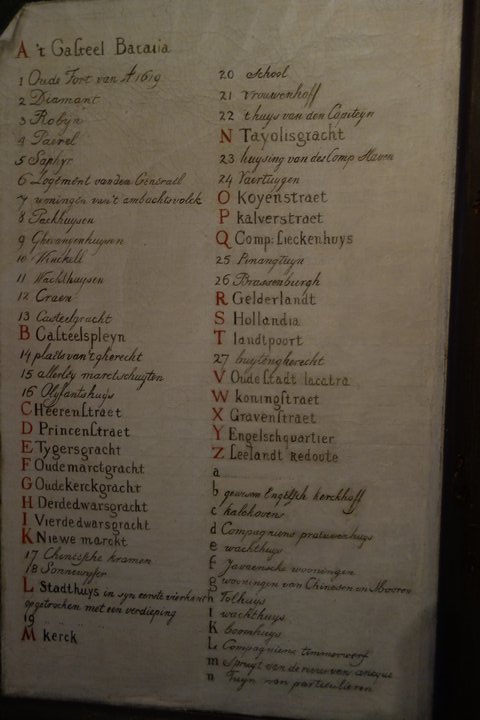 A 't Casteel Batavia
1 Oude Fort van A° 1619
2 Diamant
3 Robyn
4 Paerel
5 Saphyr
6 Logement van den Generael
7 woningen van't ambachtsvolck
8 Packhuysen
9 Ghevangenhuysen
10 Winckell
11 Wachthuysen
12 Craen
13 Casteelgracht
B Casteelspleyn
14 plaets van't gherecht
15 allerley marctschuyten
16 Olyfantshuys
C Heerenstraet
D Princenstraet
E Tygersgracht
F Oudemarctgracht
G Oudekerckgracht
H Derdedwarsgracht
I Vierdedwarsgracht
K Niewe marckt
17 Chineesche kramen
18 Sonnewyser
L Stadthuys in syn eerste vierkant
opgetrocken met een verdieping
19
M kerck
20 school
21 vrouwenhoff
22 't huys van den Capiteyn
N Tayolisgracht
23 huysing van des Comp Slaven
24 Vaertuygen
O Koyenstraet
P kalverstraet
Q Comp: Sieckenhuys
25 Pinangtuyn
26 Brassenburgh
R Gelderlandt
S Hollandia
T landtpoort
27 buytengherecht
V Oude stadt Iacatra
W koningstraet
X Gravenstraet
Y Engelschquartier
Z Zeelandt redoute
a
b gewesen Engelsch kerckhoff
c kalckovens
d Compagniens pratuvenhuys
e wachthuys
f Javaensche wooningen
g wooningen van Chinesen en Mooren
h Tolhuys
i wachthuys
K boomhuys
L Compagniens timmerwerf
m Spruyt van de revier van ancque
n Tuyn van particulieren